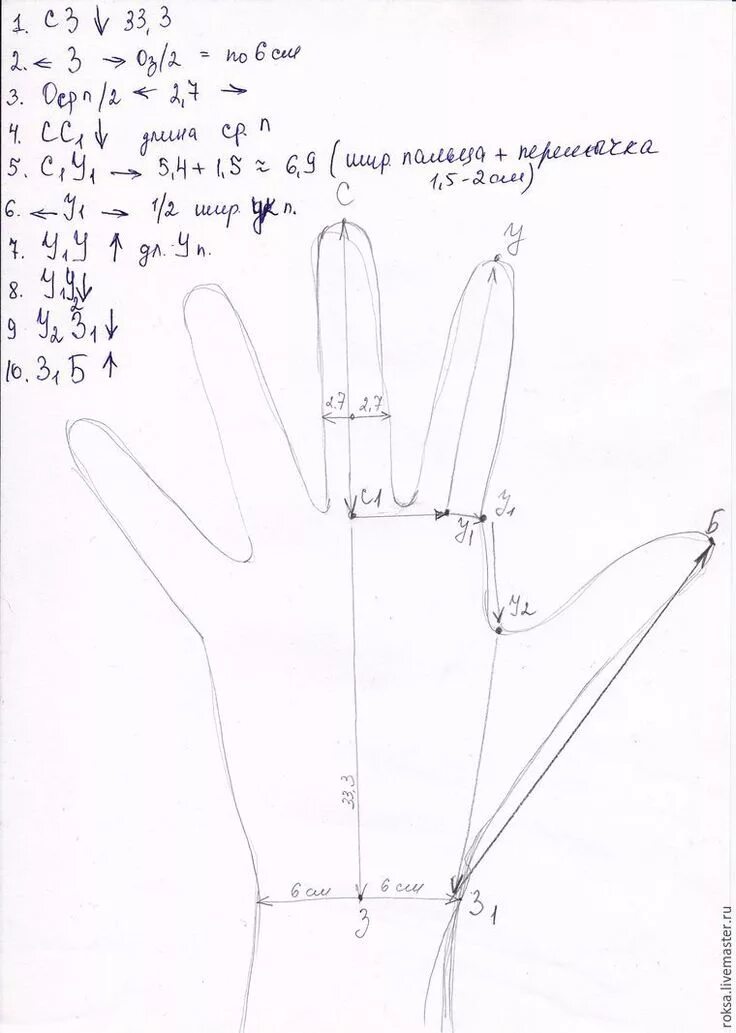 1. СЗ ↓ 33,3
2. ← З → Оз/2 = по 6 см
3. Оср п/2 ← 2,7 →
4. СС1 ↓ длина ср. п
5. С1У1 → 5,4 + 1,5 ≈ 6,9 (шир. пальца + перемычка
1,5-2 см)
6. ← У1 → 1/2 шир. ук п.
7. У1У ↑ дл. У п.
8. У1У2 ↓
9 У2 З1 ↓
10. З1 Б ↑
С
У
2.7 2,7
С1
У1
У1
Б
У2
33,3
6 см 6 см
З
З1
roksa.livemaster.ru